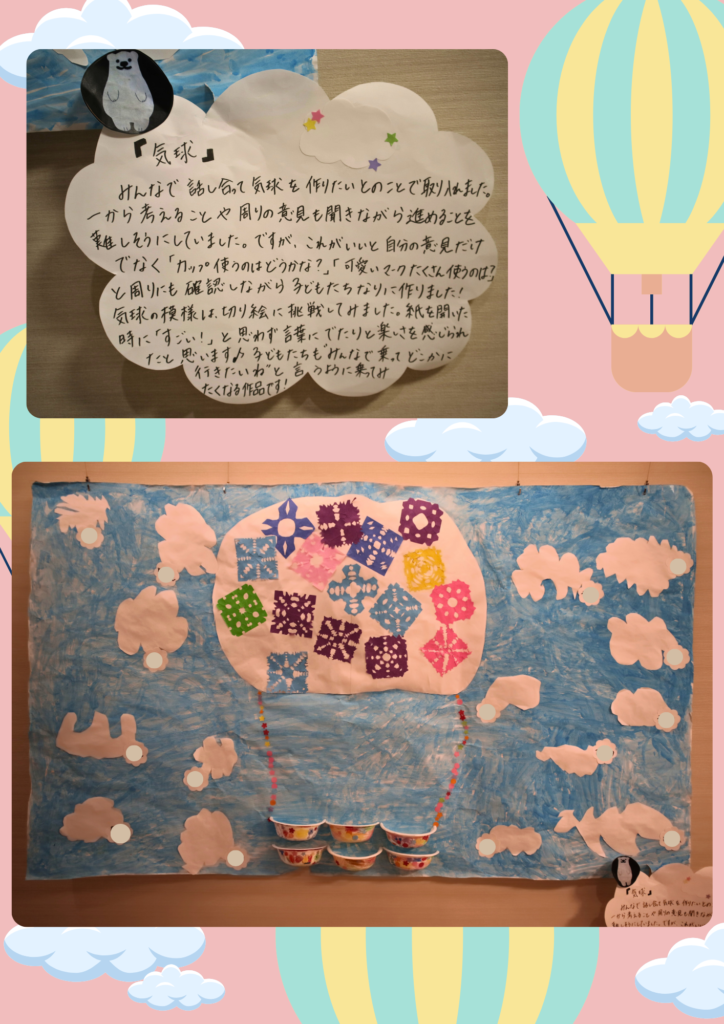 『気球』
みんなで話し合って気球を作りたいとのことで取り入れました。
一から考えることや周りの意見も聞きながら進めることを
難しそうにしていました。ですが、これがいいと自分の意見だけ
でなく「カップ使うのはどうかな?」「可愛いマークたくさん使うのは?」
と周りにも確認しながら子どもたちなりに作りました!
気球の模様は、切り絵に挑戦してみました。紙を開いた
時に「すごい!」と思わず言葉にでたりと楽しさを感じられ
たと思います♪子どもたちも"みんなで乗ってどこかに
行きたいね"と言うように乗ってみ
たくなる作品です!
『気球』
みんなで話し合って気球を作りたいとの
一から考えることや周りの意見も聞きながら
難しそうにしていました。ですが、これが